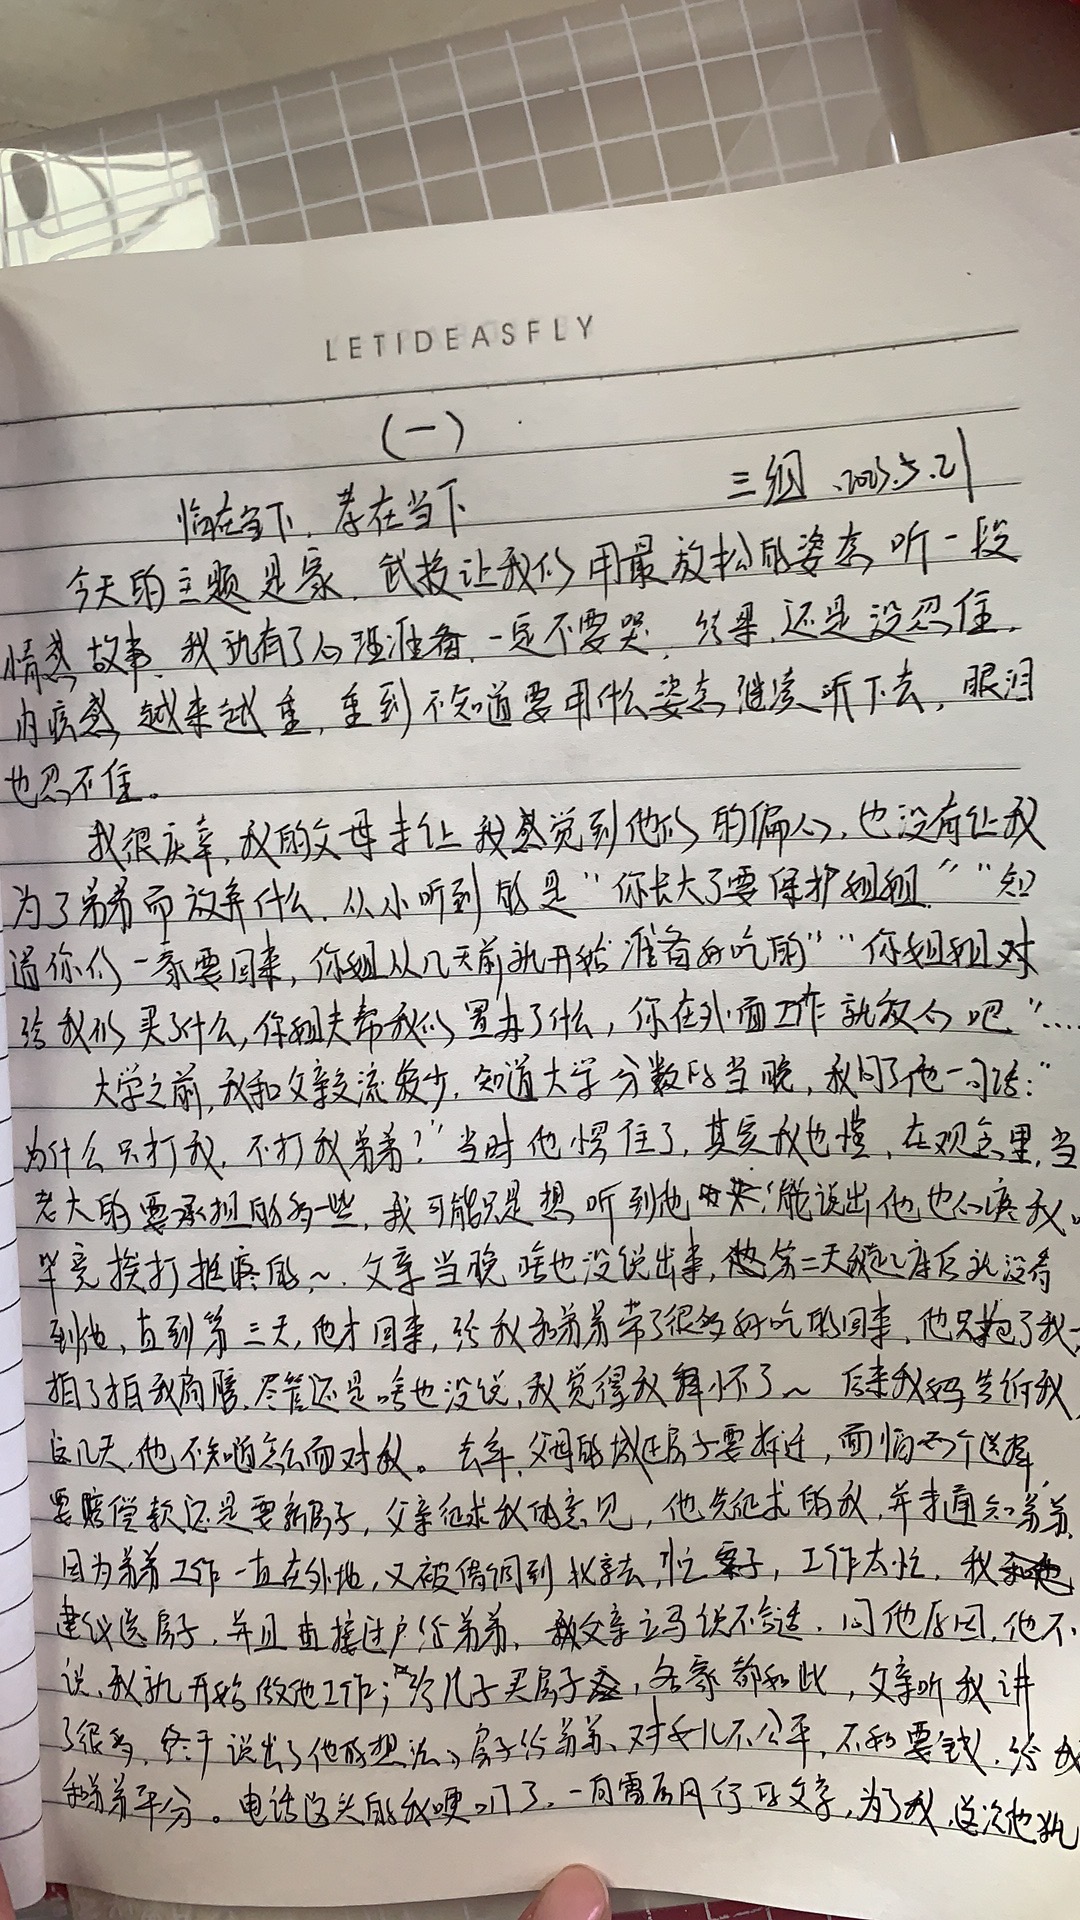 LETIDEASFLY
(一)
三组 .2023.5.21
恰在当下，存在当下
今天的主题是家，武授让我们用最放松的姿态听一段
情感故事，我就有了心理准备，一定不要哭，结果，还是没忍住，
内疚感越来越重，重到不知道要用什么姿态继续听下去，眼泪
也忍不住。
我很庆幸，我的父母未让我感觉到他们的偏心，也没有让我
为了弟弟而放弃什么，从小听到的是“你长大了要保护姐姐”“知
道你们一家要回来，你姐从几天前就开始准备好吃的”“你姐姐对
给我们买了什么，你姐夫帮我们置办了什么，你在外面工作就放心吧”……
大学之前，我和父亲交流很少，知道大学分数的当晚，我问了他一句话：“
为什么只打我，不打我弟弟？”当时他愣住了，其实我也懂，在观念里，当
老大的要承担的多一些，我可能只是想听到他能说出他也心疼我，
毕竟挨打挺疼的～，父亲当晚啥也没说出来，第二天起床后就没看
到他，直到第三天，他才回来，给我和弟弟带了很多好吃的回来，他只抱了我，
拍了拍我肩膀，尽管还是啥也没说，我觉得我释怀了～ 后来我妈告诉我，
这几天，他不知道怎么面对我。去年，父母的城区房子要拆迁，面临两个选择，
要赔偿款还是要新房子，父亲征求我的意见，他先征求的我，并未通知弟弟，
因为弟弟工作一直在外地，又被借调到北京去，忙案子，工作太忙，我
建议选房子，并且直接过户给弟弟，父亲立马说不合适，问他原因，他不
说，我就开始做他工作；“给儿子买房子，各家都如此，父亲听我讲
了很多，终于说出了他的想法，房子给弟弟，对女儿不公平，不如要钱，给我
和弟弟平分。电话这头的我哽咽了，一向雷厉风行的父亲，为了我，这次他就